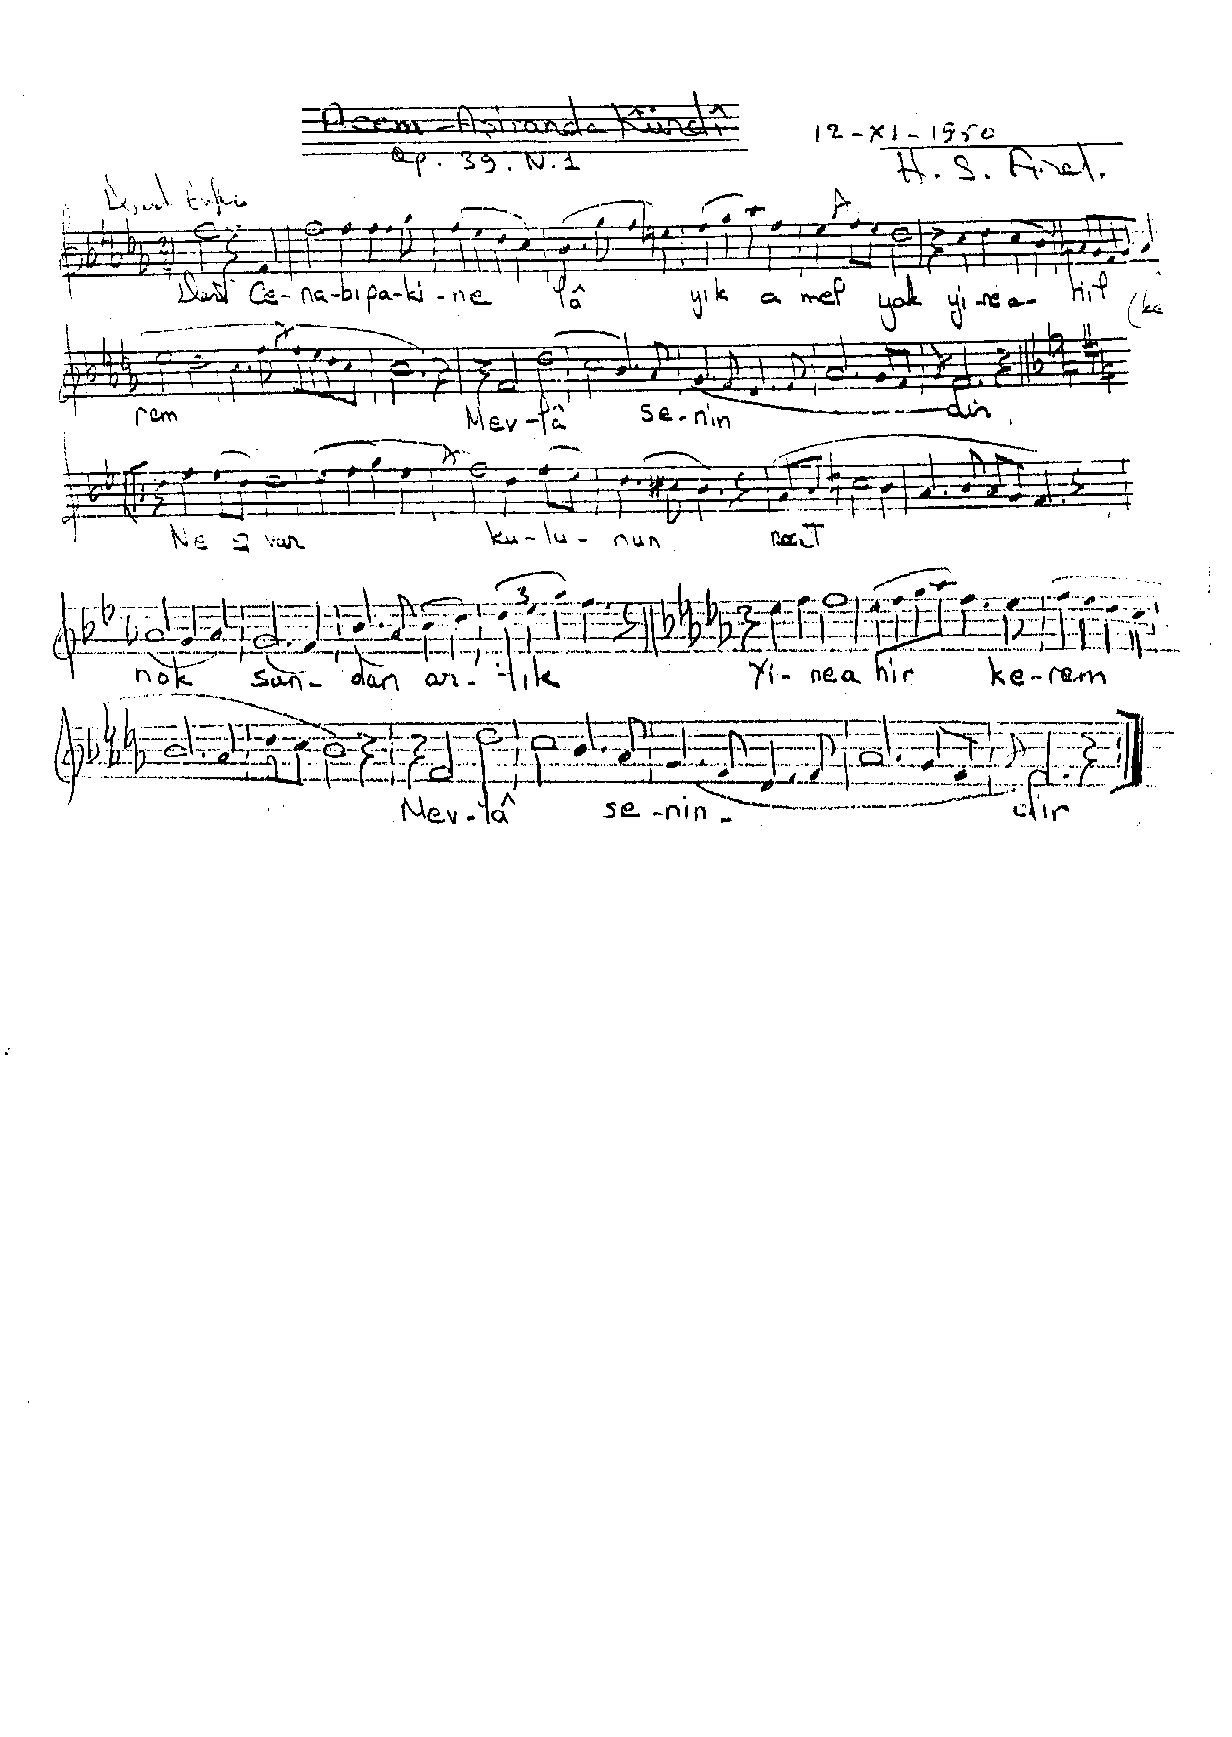 Acem-Aşiranda Kürdî
Op. 39. N.1
12-XI-1950
H. S. Arel.
Ce-na-bıpa-ki-ne lâ yık a mel yok yi-nea-hir (ke
rem Mev-lâ se-nin dir
Ne var ku-lu-nun
nok san-dan ar-tık Yi-nea hir ke-rem
3
Mev-lâ se-nin- dir